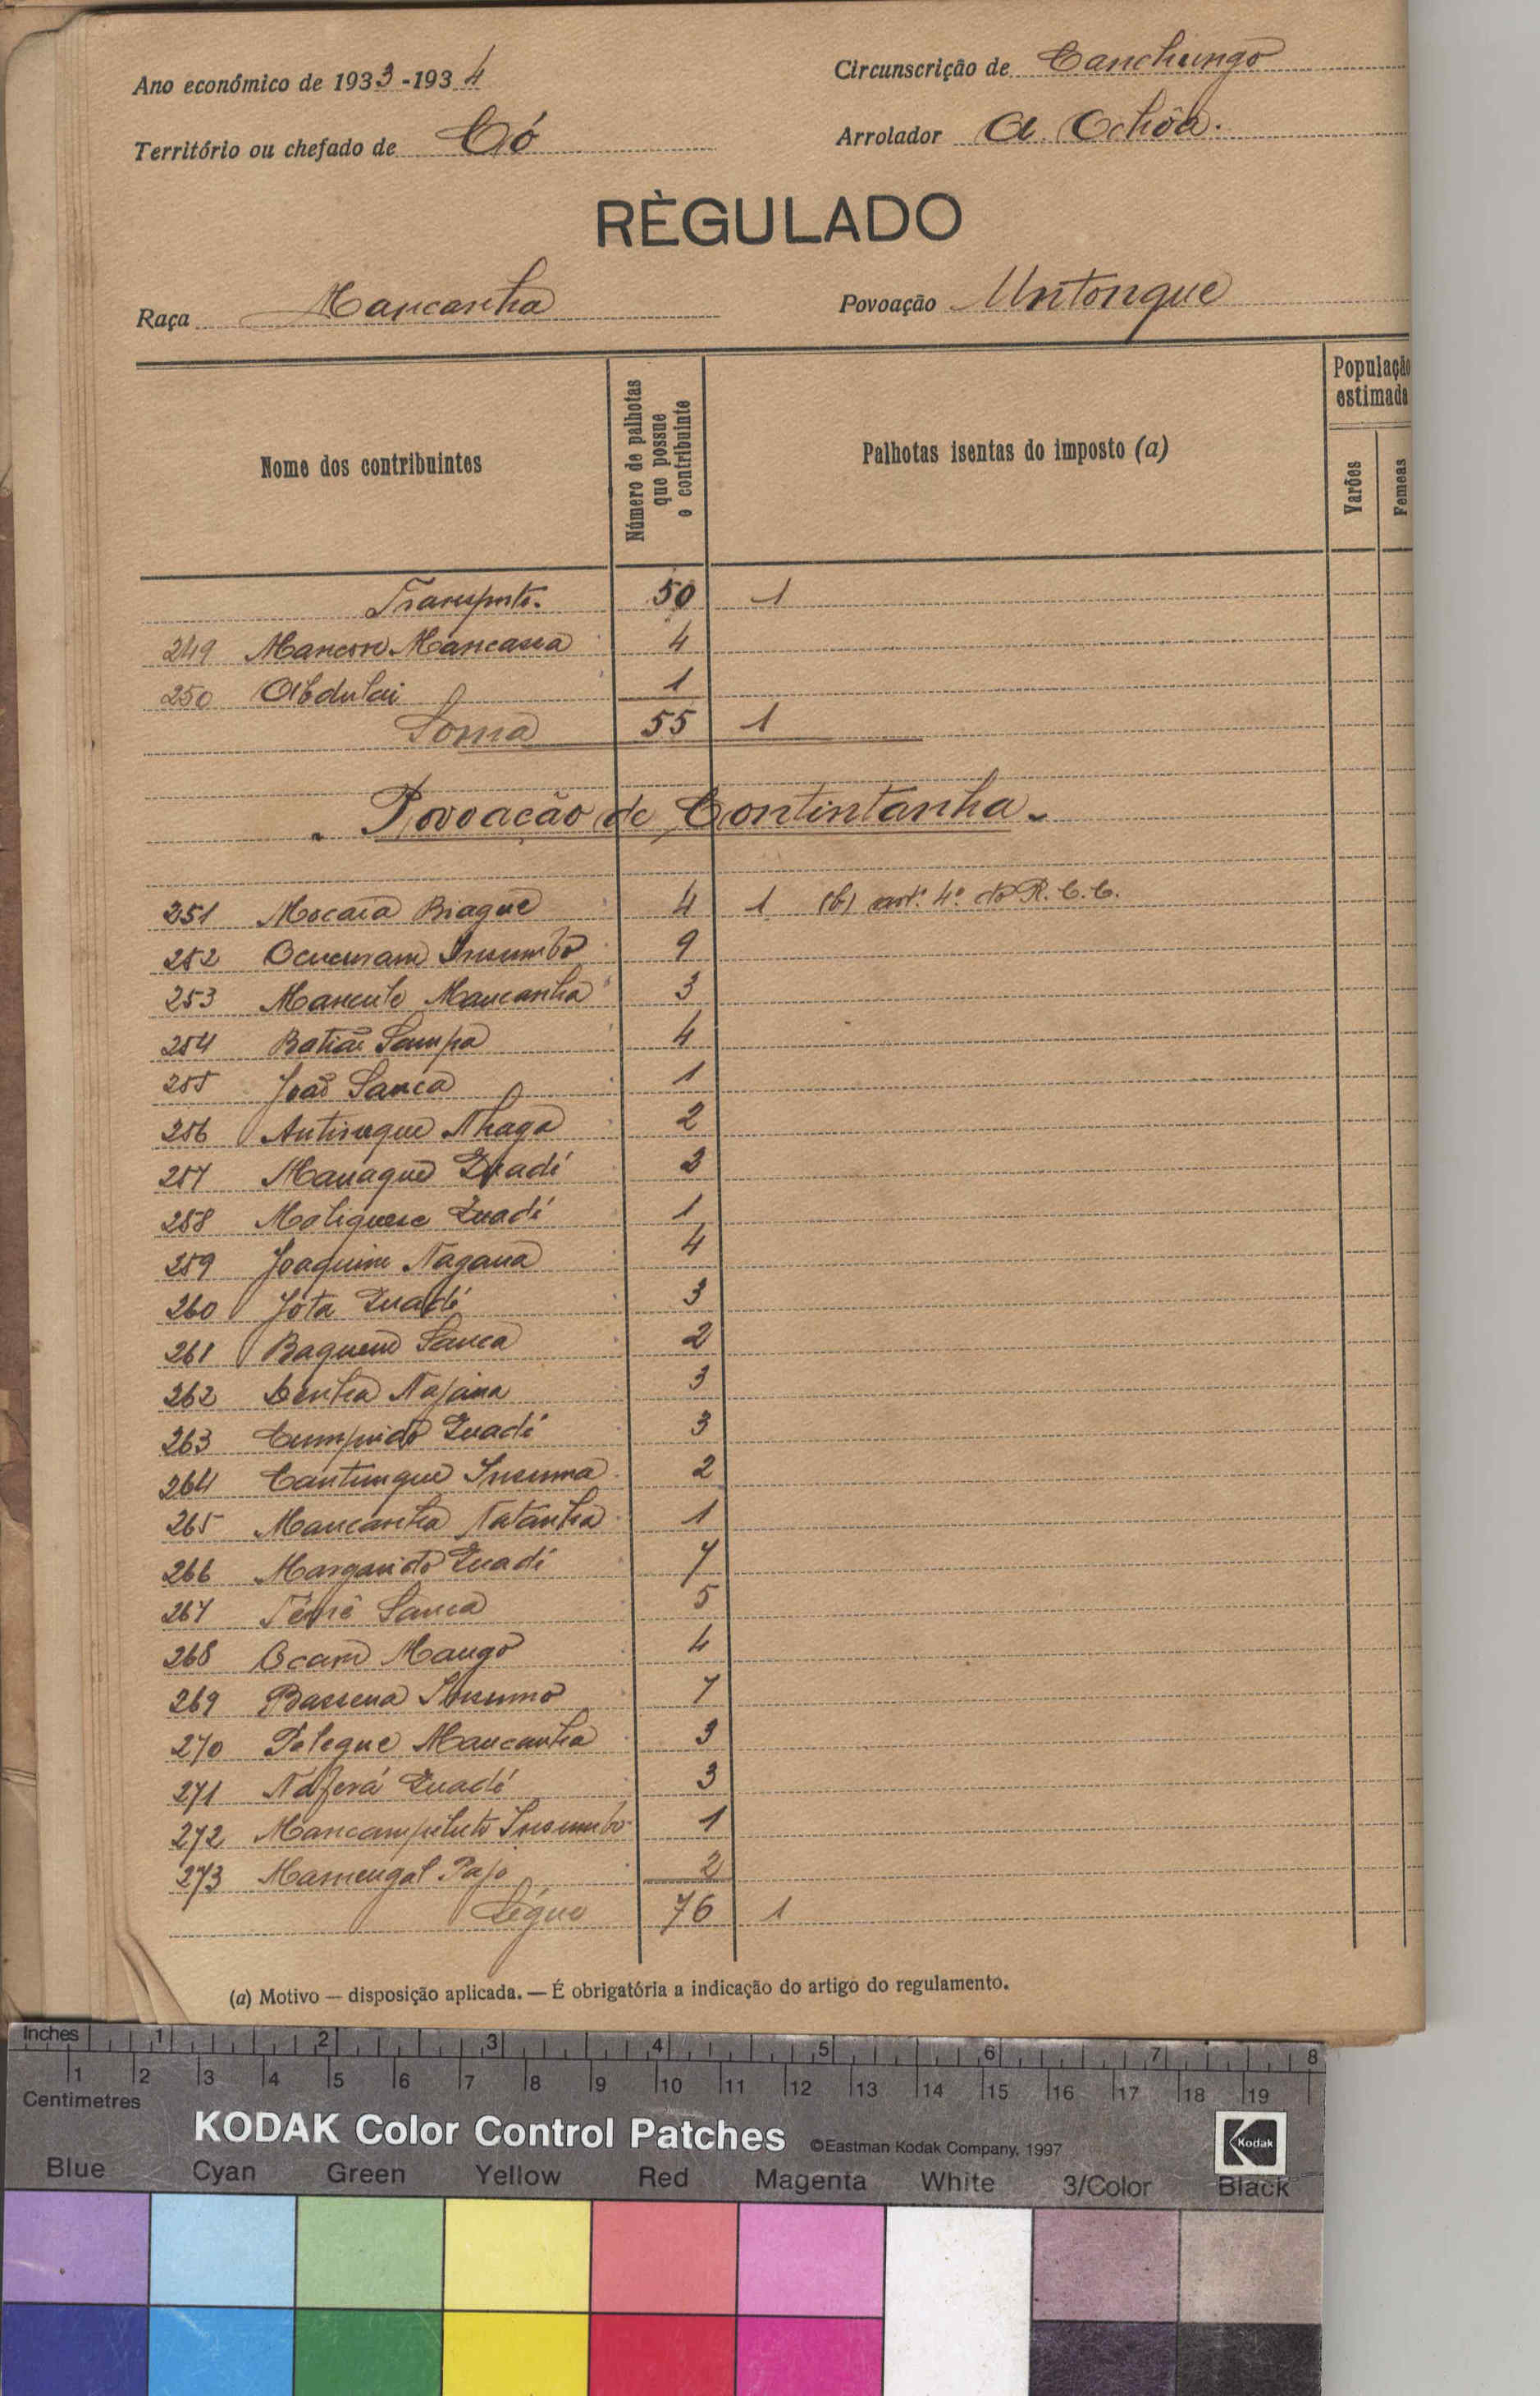 Ano económico de 1933-1934
Circunscrição de Canchungo
Território ou chefado de Có
Arrolador A. Ochôa.
RÈGULADO
Raça Mancanha
Povoação Untongue
Nome dos contribuintes
Número de palhotas que possue o contribuinte
Palhotas isentas do imposto (a)
População estimada
Varões
Femeas
Transporte. 50 1
249 Mancore Mancassa 4
250 Abdulai 1
Soma 55 1
Povoação de Contintanha.
251 Mocaia Biague 4 1 (b) art.º 4.º do R. C. C.
252 Insumbo 9
253 Mancule Mancanha 3
254 Batiãe Sampa 4
255 João Sanca 1
256 Antinque Nhaga 2
257 Manaque Quadé 3
258 Quadé 1
259 Joaquim Nagana 4
260 Jóta Quadé 3
261 Baquene Sanca 2
262 Benha Najana 3
263 Cumprido Quadé 3
264 Cantungue Insuma 2
265 Mancanha Natanha 1
266 Margarido Quadé 7
267 Sanca 5
268 Ocam Mango 4
269 Bassena Insumo 7
270 Pelegue Mancanha 3
271 Naferá Quadé 3
272 Insumbo 1
273 Mamengal Pajo 2
Ségue 76 1
(a) Motivo — disposição aplicada. — É obrigatória a indicação do artigo do regulamento.
Inches 1 2 3 4 5 6 7 8
1 2 3 4 5 6 7 8 9 10 11 12 13 14 15 16 17 18 19
Centimetres
KODAK Color Control Patches ©Eastman Kodak Company, 1997 Kodak
Blue Cyan Green Yellow Red Magenta White 3/Color Black